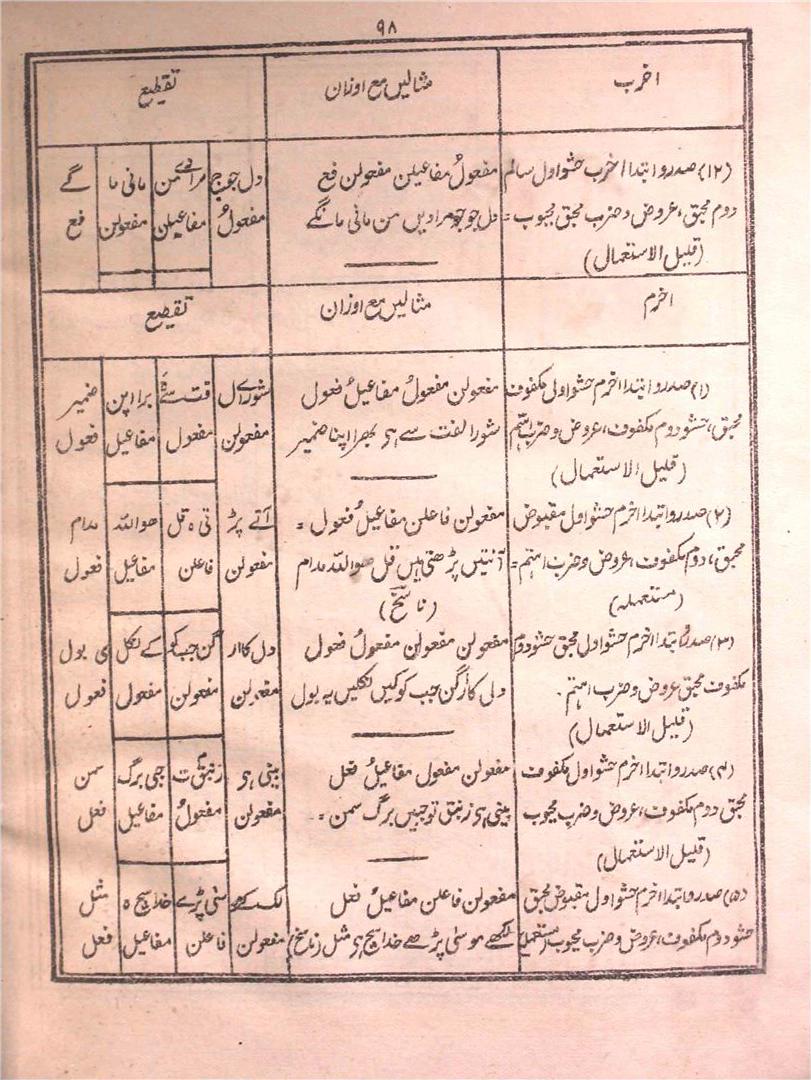 ۹۸
اخرب مثالیں مع اوزان تقطیع
(۱۲) صدر و ابتدا اخرب حشو اول سالم مفعولُ مفاعیلن مفعولن فع دل جو ج مرادے من مانی ما گے
دوم محبق، عروض و ضرب محبق مجبوب = دل جو جو مرادیں من مانی مانگے مفعولُ مفاعیلن مفعولن فع
(قلیل الاستعمال)
اخرم مثالیں مع اوزان تقطیع
(۱) صدر و ابتدا اخرم حشو اولی مکفوف مفعولن مفعولُ مفاعیلُ فعول شورے ال فت سے ہ برا اپن ضمیر
محبق، حشو دوم مکفوف، عروض و ضرب اہتم شور الفت سے ہی بھرا اپنا ضمیر مفعولن مفعول مفاعیل فعول
(قلیل الاستعمال)
(۲) صدر و ابتدا اخرم حشو اول مقبوض مفعولن فاعلن مفاعیلُ فعول = آتے پڑ تی ہ قل ھو اللہ مدام
محبق، دوم مکفوف، عروض و ضرب اہتم = آئتیں پڑھتی ہیں قل ھو اللہ مدام مفعولن فاعلن مفاعیل فعول
(مستعملہ) (ناسخ)
(۳) صدر و ابتدا اخرم حشو اول محبق حشو دوم مفعولن مفعولن مفعولُ فعول دل کا ار گن جب کو کے نکل ی بول
مکفوف محبق عروض و ضرب اہتم۔ دل کا ارگن جب کو کیں نکلیں یہ بول مفعولن مفعولن مفعول فعول
(قلیل الاستعمال)
(۴) صدر و ابتدا اخرم حشو اول مکفوف مفعولن مفعول مفاعیلُ فعل بینی ہی زنبق ت جبی برگ سمن
محبق دوم مکفوف، عروض و ضرب مجبوب بینی ہی زنبق تو جبیں برگ سمن = مفعولن مفعولُ مفاعیل فعل
(قلیل الاستعمال)
(۵) صدر و ابتدا اخرم حشو اول مقبوض محبق مفعولن فاعلن مفاعیلُ فعل لک کھے سٰی پڑے خدا سچ ہ مثل
حشو دوم مکفوف، عروض و ضرب مجبوب (مستعمل) لکھے موسٰی پڑھے خدا سچ ہی مثل مفعولن فاعلن مفاعیل فعل